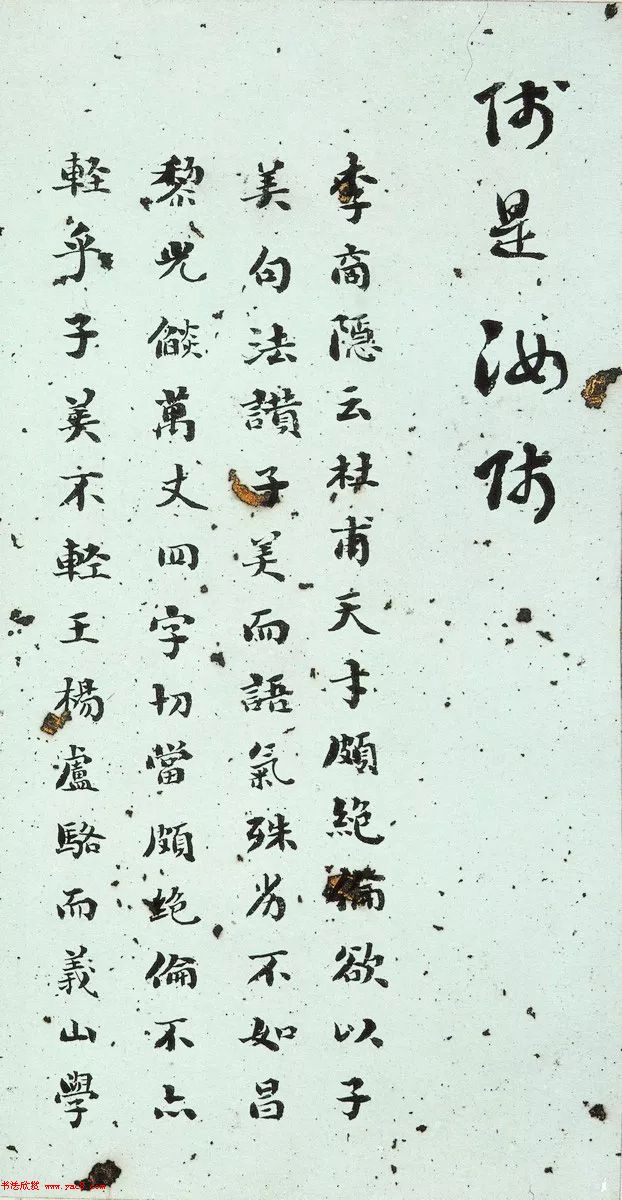 师是汝师
李商隱云杜甫天才頗絕倫欲以子
美句法讚子美而語氣殊劣不如昌
黎光燄萬丈四字切當頗絕倫不亦
輕乎子美不輕王楊盧駱而義山學
书法欣赏 www.yac8.com